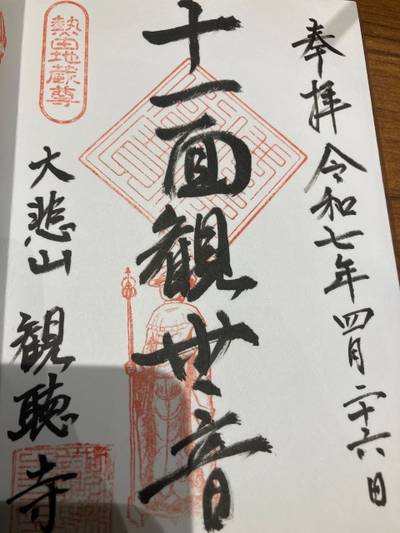 奉拝 令和七年四月二十六日
十一面観世音
熱田地蔵尊
大悲山 観聴寺